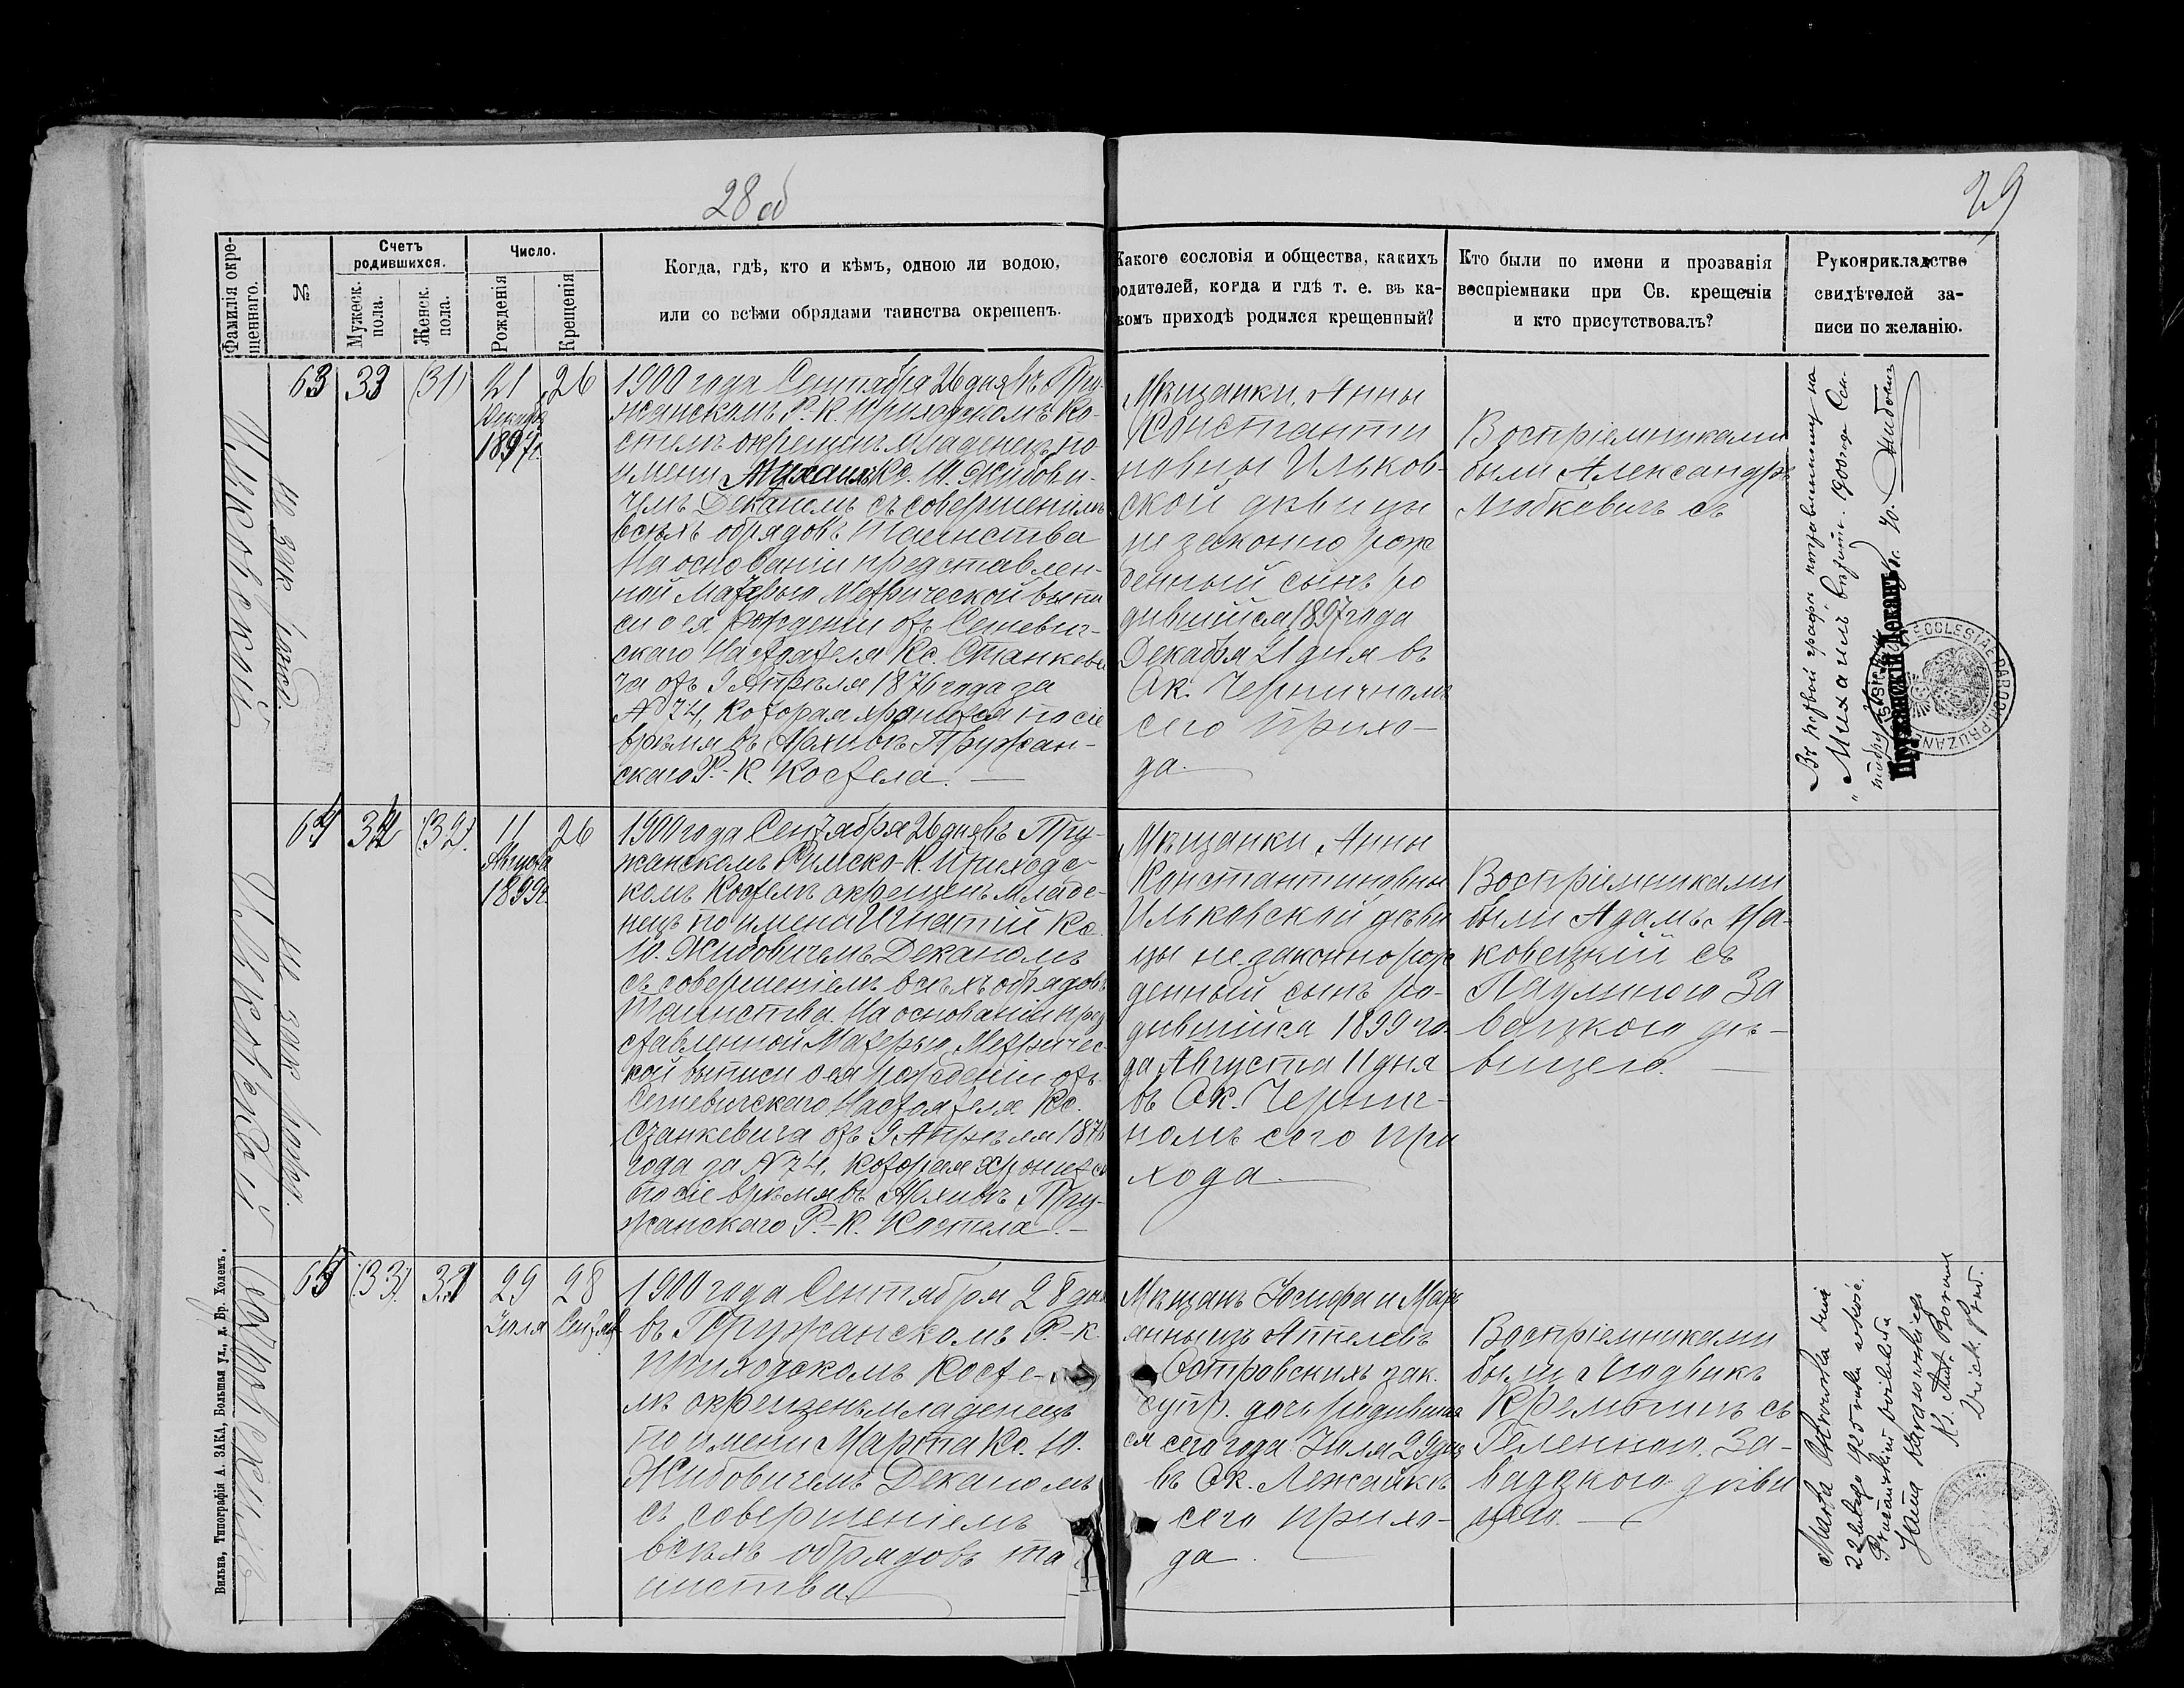 28 об
29
Фамилія окре-
щеннаго.
№
Счетъ
родившихся.
Мужеск.
пола.
Женск.
пола.
Число.
Рожденія
Крещенія
Когда, гдѣ, кто и кѣмъ, одною ли водою,
или со всѣми обрядами таинства окрещенъ.
Какого сословія и общества, какихъ
родителей, когда и гдѣ т. е. въ ка-
комъ приходѣ родился крещенный?
Кто были по имени и прозванія
воспріемники при Св. крещеніи
и кто присутствовалъ?
Рукоприкладство
свидѣтелей за-
писи по желанію.
Ильковскій
не зак. рожд.
63
33
(31)
21
Декабря
1897г.
26
1900 года Сентября 26 дня въ Пру-
жанскомъ Р. К. приходскомъ Ко-
стелѣ окрещенъ младенецъ по
имени Михаилъ Кс. Ю. Жибови-
чемъ Деканомъ съ совершеніемъ
всѣхъ обрядовъ таинства
На основаніи представлен-
ной матерью Метрической выпи
си о ея рожденіи отъ Сегневич-
скаго Настоятеля Кс. Станкеви
ча отъ 9 Апрѣля 1876 года за
№ 74, которая хранится по сіе
время въ Архивѣ Пружан-
скаго Р.-К. Костела. —
Мѣщанки, Анны
Константи
новны Ильков-
ской дѣвицы
не законно рож
денный сынъ ро
дившійся 1897 года
Декабря 21 дня въ
Ок. Черничномъ
сего прихо-
да.
Воспріемниками
были Александръ
Любкевичъ съ
Въ первой графѣ поправленному на
"Михаилъ" вѣрить. 1900 года Сен-
Пружанскій Деканъ Кс. Ю. Жибовичъ
ECCLESIAE PAROCH. PRUZANENSIS
Ильковскій
не зак. рожд.
64
34
(32).
11
Августа
1899г.
26
1900 года Сентября 26 дня въ Пру-
жанскомъ Римско-К. приходс-
комъ Костелѣ окрещенъ младе-
нецъ по имени Игнатій Кс.
Ю. Жибовичемъ Деканомъ
съ совершеніемъ всѣхъ обрядовъ
таинства На основаніи пред
ставленной Матерью Метричес-
кой выписи о ея рожденіи отъ
Сегневичскаго Настоятеля Кс.
Станкевича отъ 9 Апрѣля 1876
года за № 74, которая хранится
по сіе время въ Архивѣ Пру-
жанскаго Р.-К. Костела. —
Мѣщанки, Анны
Константиновны
Ильковской дѣви
цы незаконнорож
денный сынъ ро-
дившійся 1899 го-
да Августа 11 дня
въ Ок. Чернич-
номъ сего при
хода
Воспріемниками
были Адамъ Ма-
ковецкій съ
Паулиною За
вацкою дѣ-
вицею.
Островскихъ
65
(33).
32
29
Іюля
28
Сентяб
1900 года Сентября 28 дня
въ Пружанскомъ Р.-К.
приходскомъ Косте-
лѣ окрещенъ младенецъ
по имени Марта Кс. Ю.
Жибовичемъ Деканомъ
съ совершеніемъ
всѣхъ обрядовъ та
инства
Мѣщанъ Іосифа и Мар
янны изъ Аппелевъ
Островскихъ зак.
супр. дочь родивша
ся сего года Іюля 29 дня
въ Ок. Лежайкѣ
сего прихо-
да.
Воспріемниками
были Людвикъ
Крельчинъ съ
Геленною За-
вадзкою дѣви
цею.
Marta Ostrowska dnia
22 lutego 1925 roku w kośc.
Prużańskim poślubiła
Jana Karasińskiego
Ks. Ant. Roman
Dziek. Pruż.
Вильна, Типографія А. ЗАКА, Большая ул., д. Бр. Холемъ.